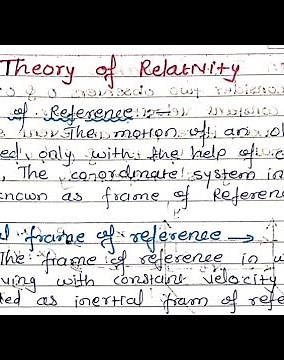 Theory of RelatNity
of Reference :-
The motion of an ol
ed only with the help of c
, The coordinate system in
known as frame of Referen
l frame of reference →
The frame of reference in w
ving with constant velocity
ted as inertial fram of refe